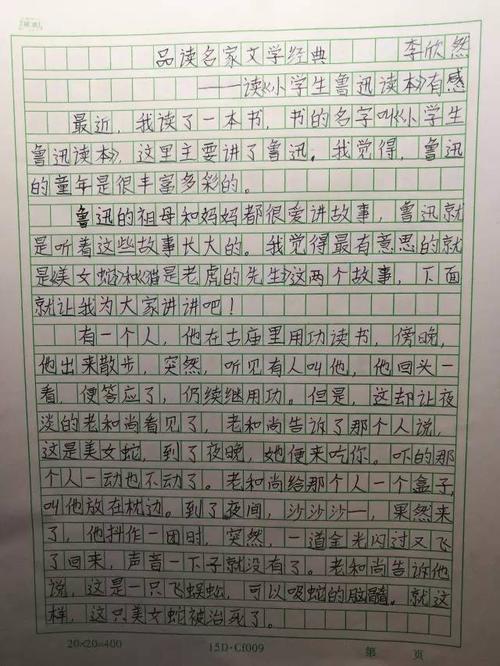 品读名家文学经典 李欣然
——读《小学生鲁迅读本》有感
最近，我读了一本书，书的名字叫《小学生
鲁迅读本》，这里主要讲了鲁迅。我觉得，鲁迅
的童年是很丰富多彩的。
鲁迅的祖母和妈妈都很爱讲故事，鲁迅就
是听着这些故事长大的。我觉得最有意思的就
是《美女蛇》和《猫是老虎的先生》这两个故事，下面
就让我为大家讲讲吧！
有一个人，他在古庙里用功读书，傍晚，
他出来散步，突然，听见有人叫他，他回头一
看，便答应了，仍续继用功。但是，这却让夜
淡的老和尚看见了，老和尚告诉了那个人说，
这是美女蛇，到了夜晚，她便来吃你。吓的那
个人一动也不动了。老和尚给那个人一个盒子，
叫他放在枕边。到了夜间，沙沙沙—，果然来
了，他抖作一团时，突然，一道金光闪过又飞
了回来，声音一下子就没有了。老和尚告诉他
说，这是一只飞蜈蚣，可以吸蛇的脑髓。就这
样，这只美女蛇被治死了。
20×20=400 15D-Cf009 第 页